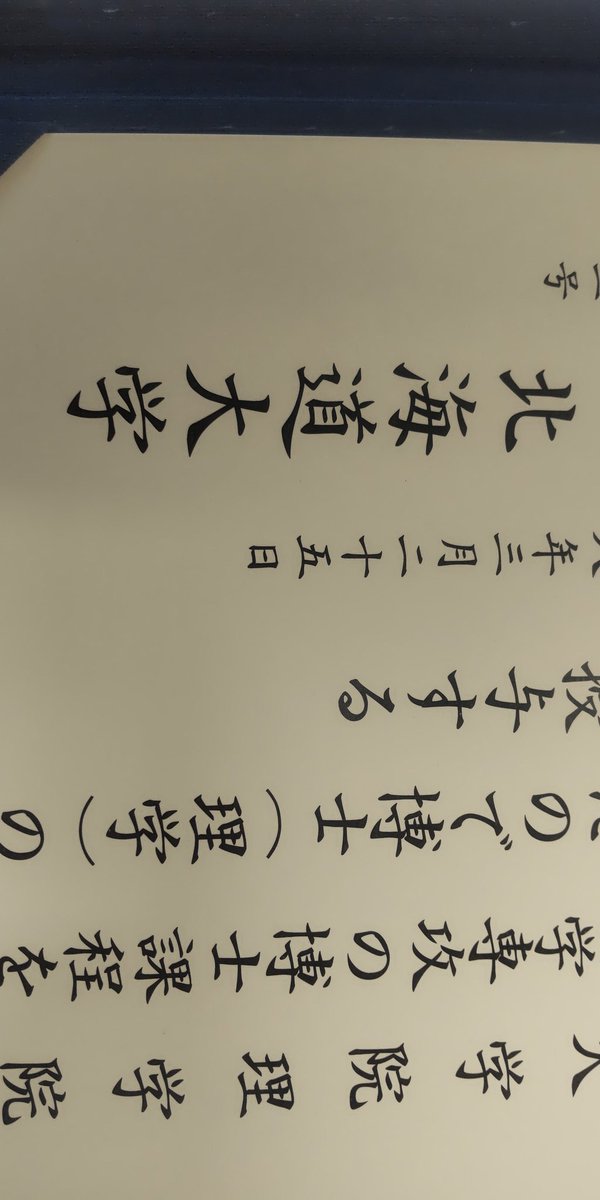 大学院理学院
学専攻の博士課程を
たので博士（理学）の
授与する
年三月二十五日
北海道大学
号